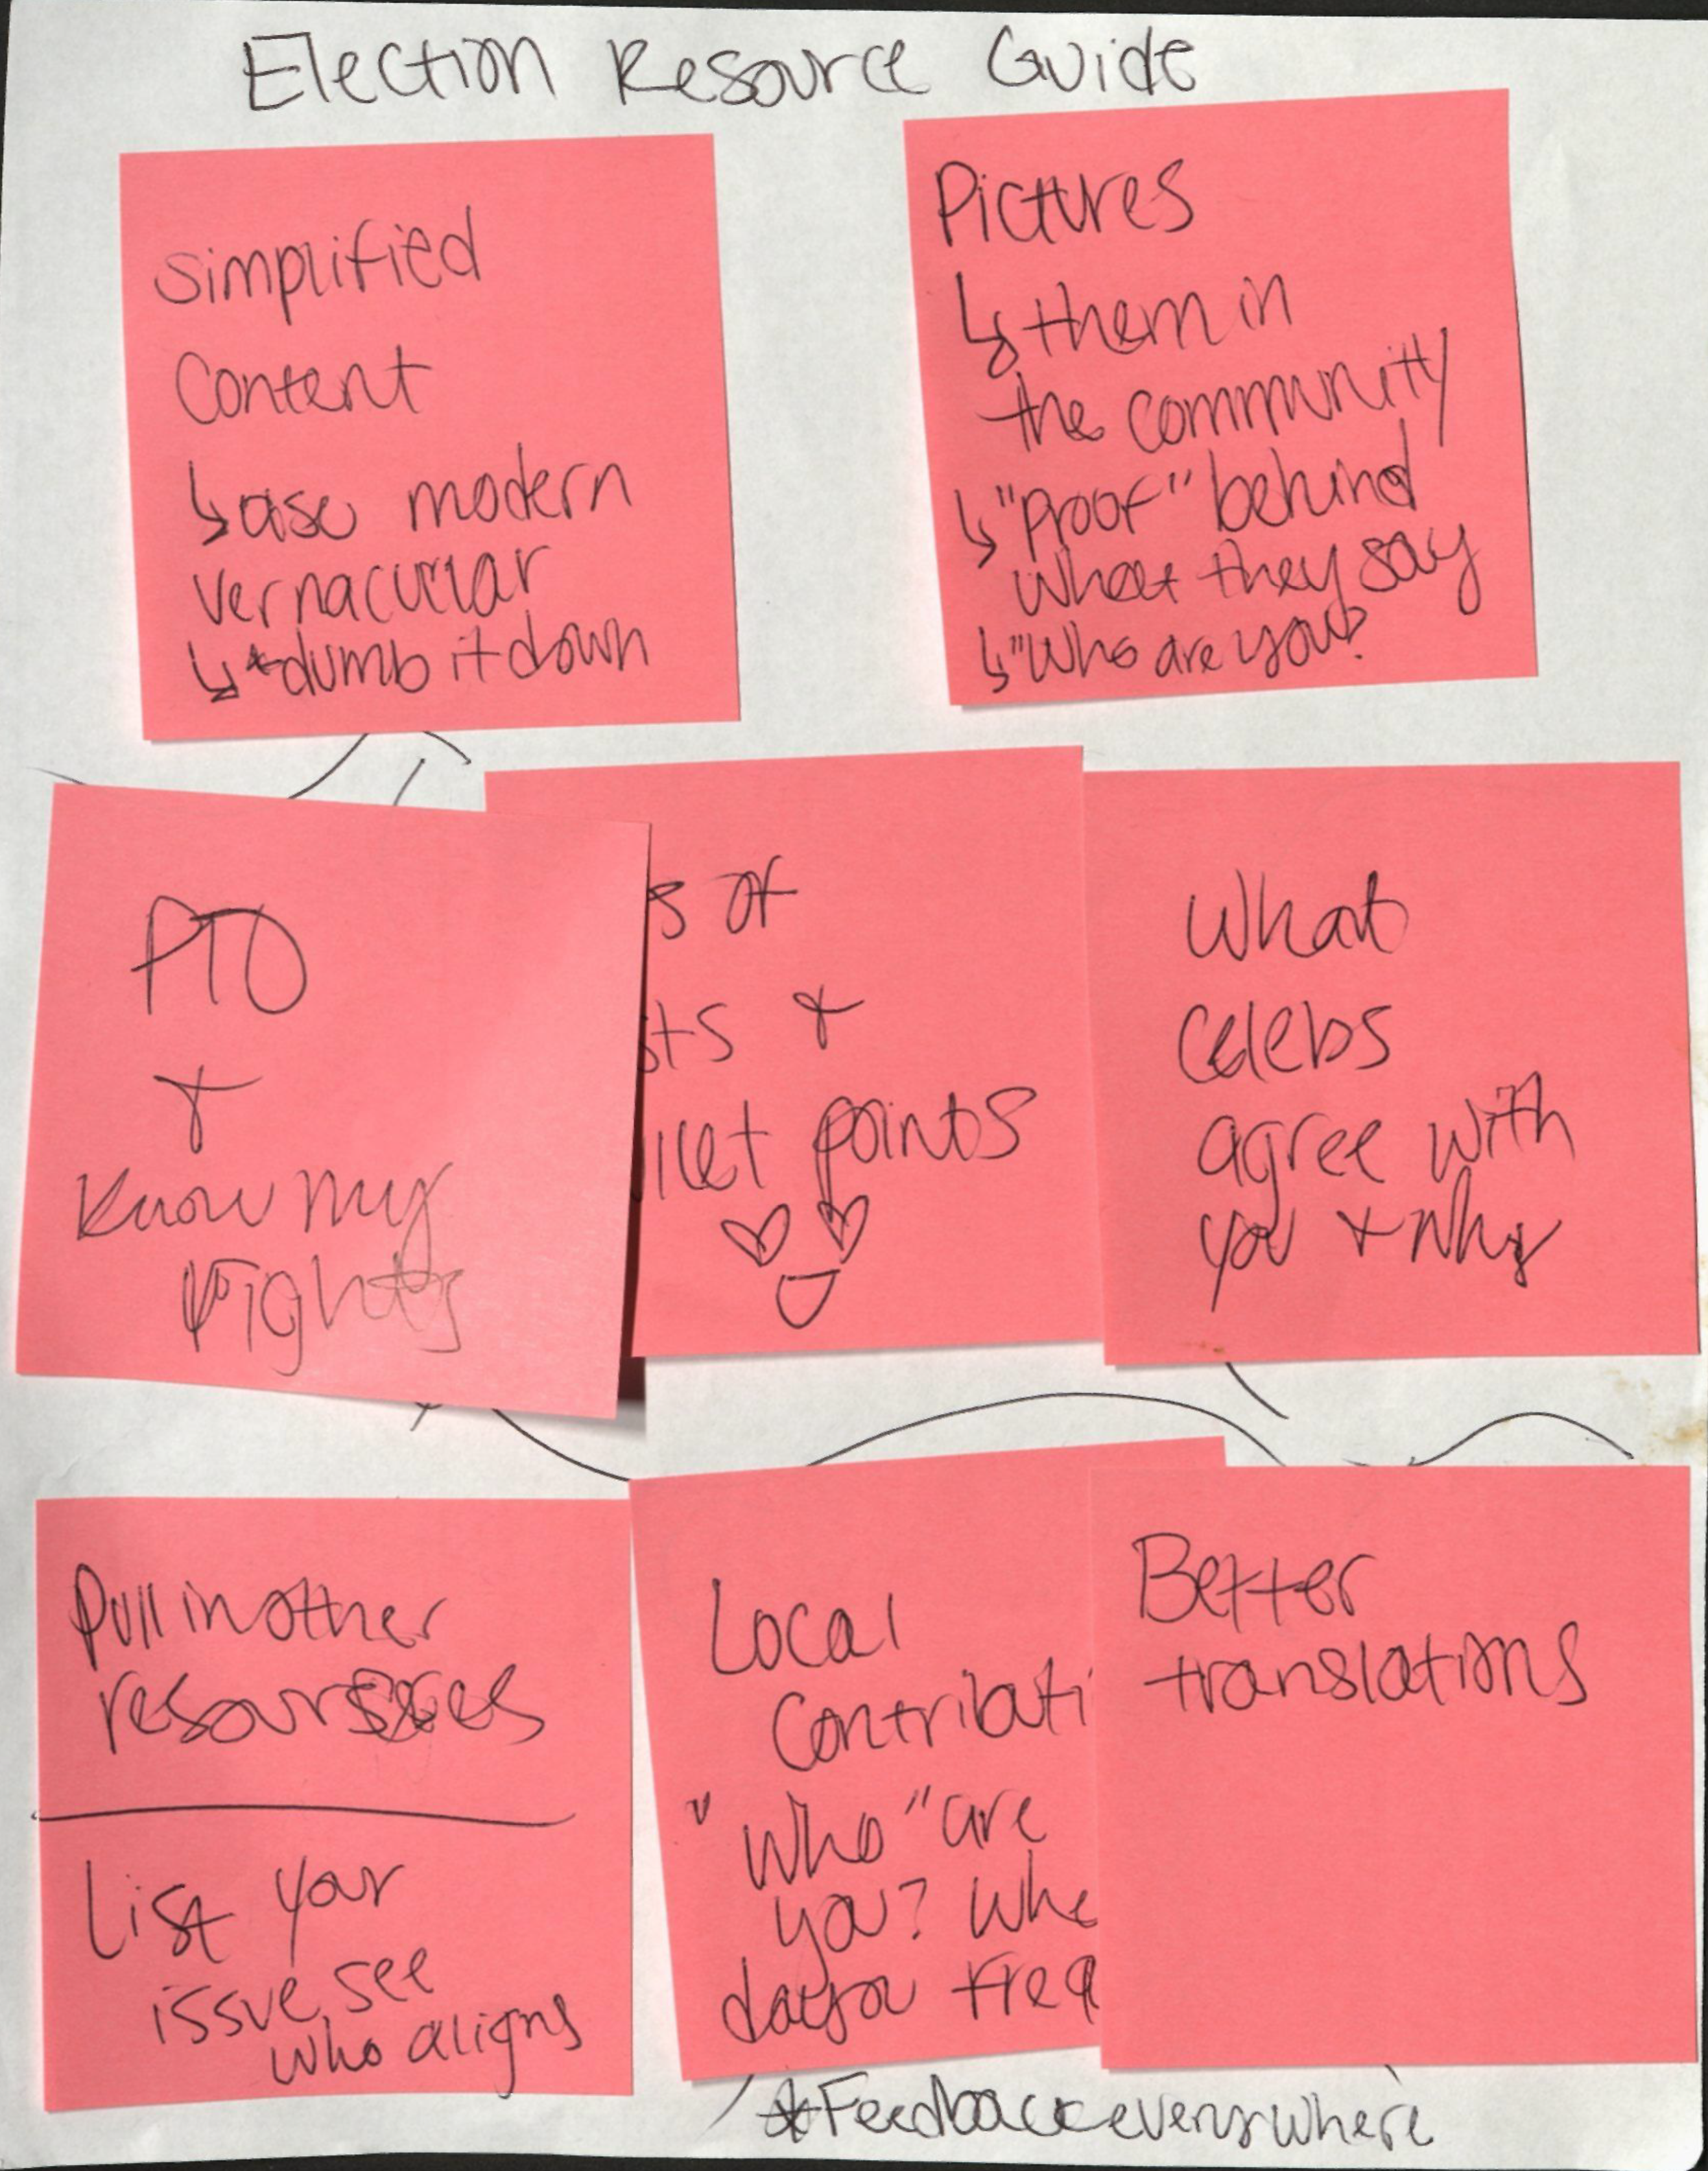 Election Resource Guide
simplified
Content
↳ use modern
vernacular
↳ *dumb it down
Pictures
↳ them in
the community
↳ "proof" behind
what they say
↳ "Who are you?
PTO
+
Know my
rights
s of
sts +
llet points
What
celebs
agree with
you + why
Pull in other
resources
List your
issue, see
who aligns
Local
Contributi
"Who" are
you? Whe
do you freq
Better
translations
*Feedback everywhere